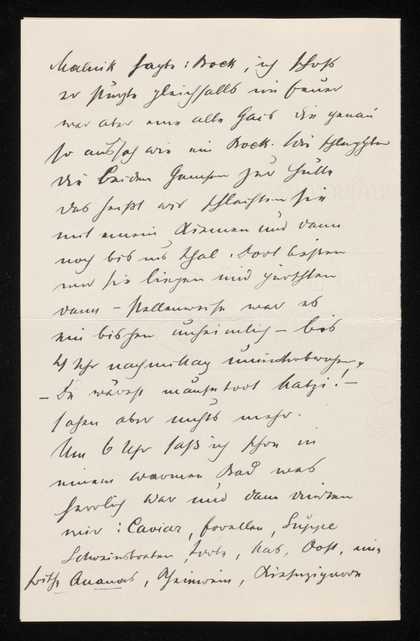 Malnik sagte: Bock, ich schoß
er stürzte gleichfalls im Feuer
war aber eine alte Gais die genau
so aussah wie ein Bock. Wir schleppten
die beiden Gemsen zur Hütte
das heißt wir schleiften sie
mit einem Riemen und dann
noch bis ins Thal. Dort ließen
wir sie liegen und pirschten
dann – stellenweise war es
ein bischen unheimlich – bis
4 Uhr nachmittag ununterbrochen,
– Du wärest mausetodt Katzi! –
sahen aber nichts mehr.
Um 6 Uhr saß ich schon in
einem warmen Bad was
herrlich war und dann
wir: Caviar, Forellen, Suppe
Schweinsbraten, Torte, Käs, Obst, eine
frische Ananas, Rheinwein,